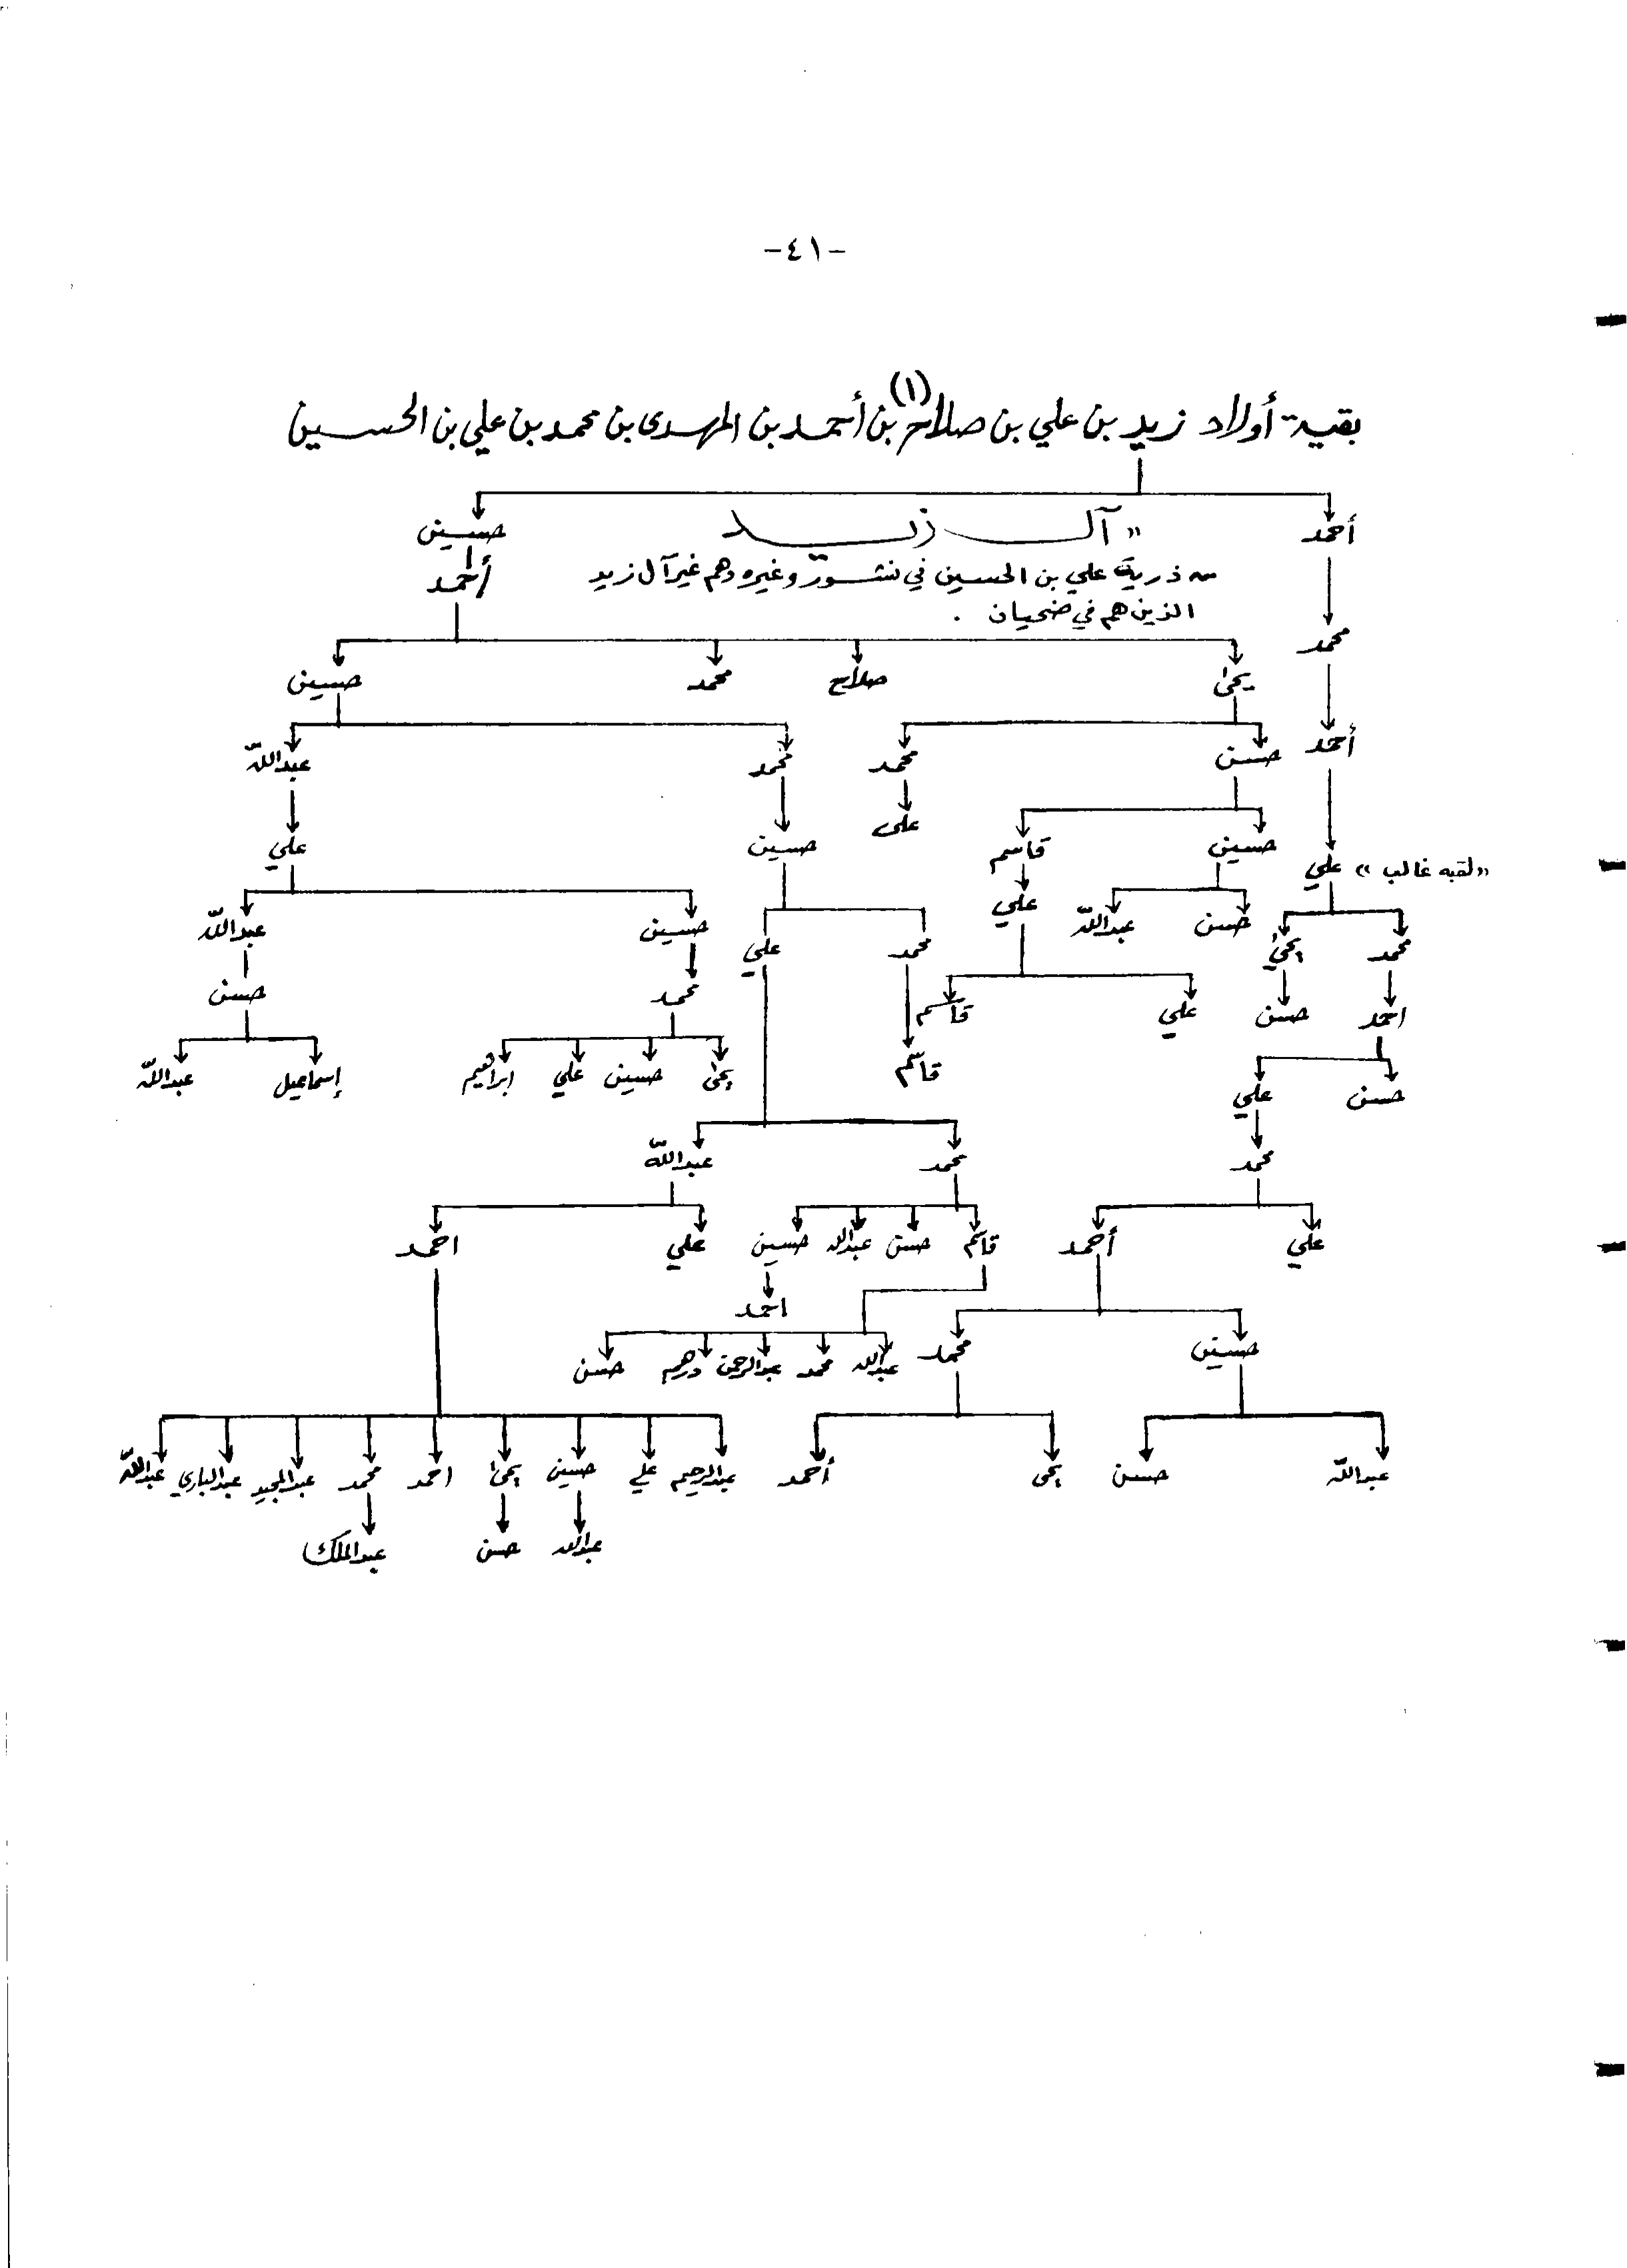 -٤١-
بقية أولاد زيد بن علي بن صلاح (١) بن أحمد بن المهدى بن محمد بن علي بن الحسين
أحمد حسين
" آل زيد
من ذرية علي بن الحسين في نشور وغيره وهم غير آل زيد
أحمد
الذين هم في ضحيان .
محمد
يحيى صلاح محمد حسين
أحمد حسن محمد محمد عبدالله
علي
حسين قاسم حسين علي
علي "لقبه غالب"
حسن عبدالله علي حسين عبدالله
محمد يحيى محمد علي
احمد حسن علي قاسم محمد حسن
يحيى حسين علي ابراهيم إسماعيل عبدالله
قاسم
حسن علي
محمد محمد عبدالله
علي أحمد قاسم حسن عبدالله حسين علي احمد
احمد
حسين محمد عبدالله محمد عبدالرحمن درهم حسن
عبدالله حسن يحيى أحمد عبدالرحيم علي حسين يحيى احمد محمد عبدالمجيد عبدالباري عبدالله
عبدالله حسن عبدالملك